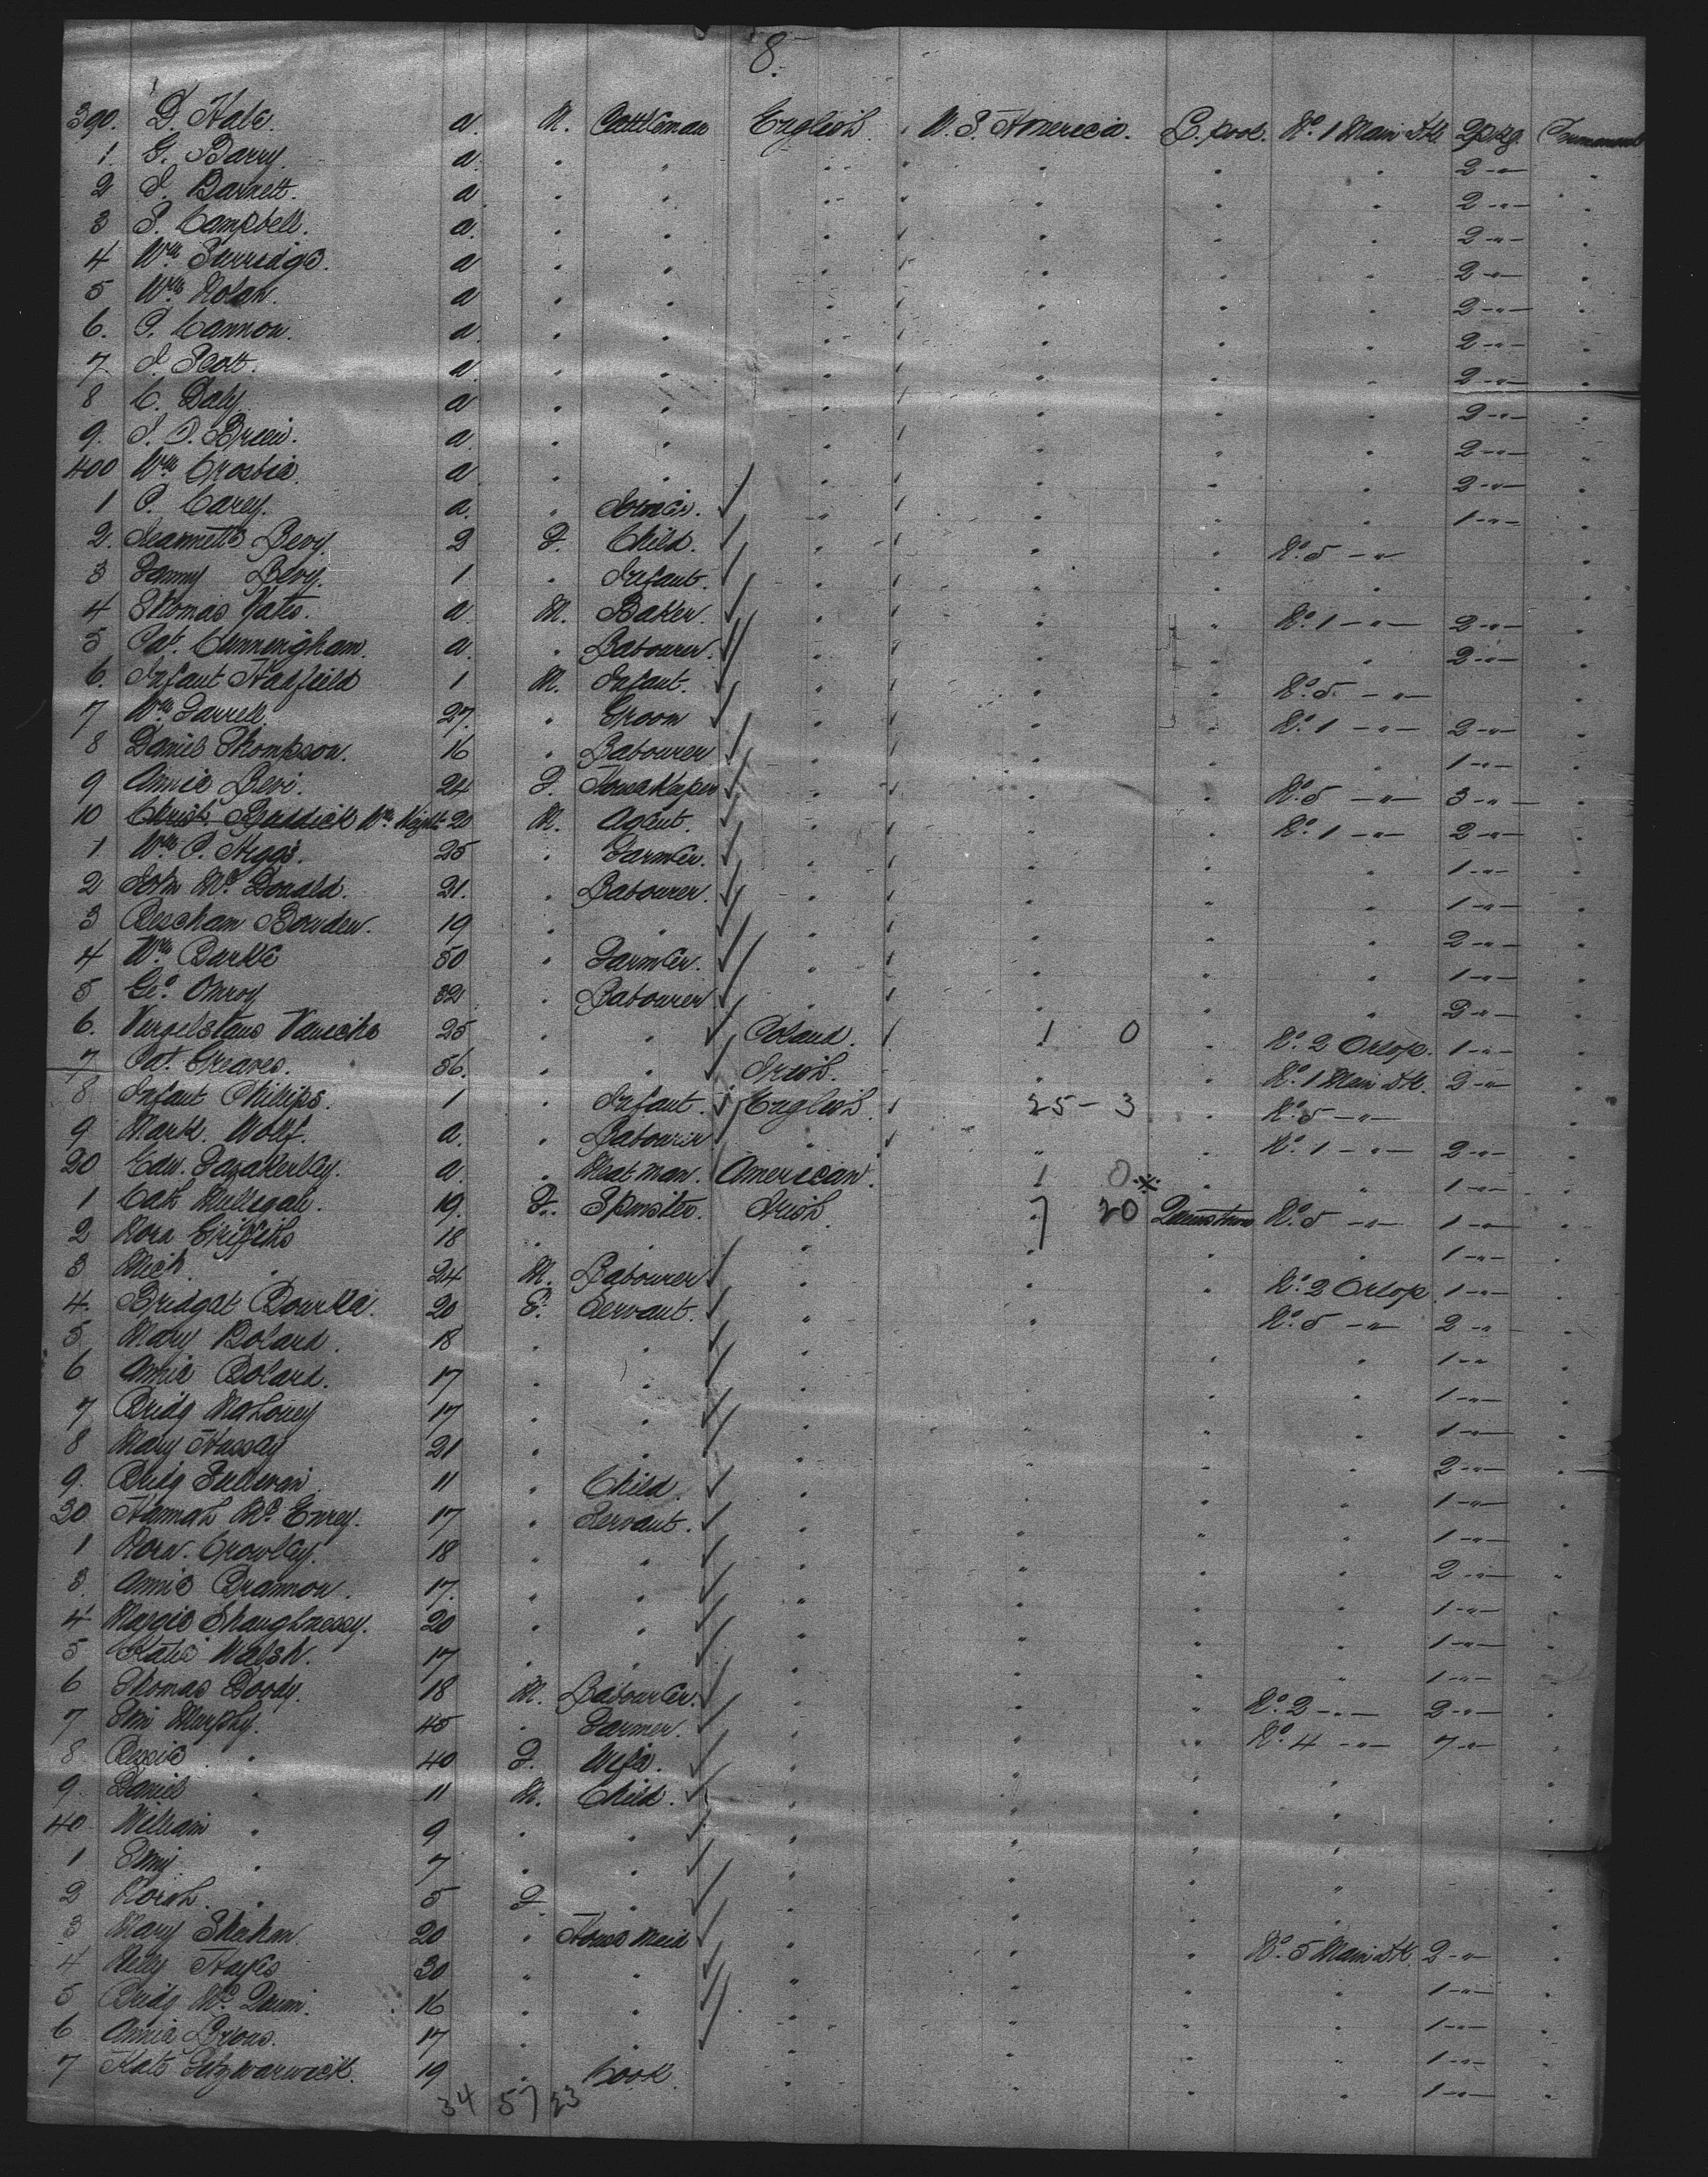 8.
390. D. Hale. a. M. Cattleman English U. S. America. L.pool. No. 1 Main Dk. 2 Pkg.
1. G. Barry. a. . . . . . . . 2 -"-
2 J. Barnett. a. . . . . . . 2 -"-
3 P. Campbell. a. . . . . . . 2 -"-
4 Wm Surridge. a . . . . . . 2 -"-
5 Wm Nolan. a . . . . . . 2 -"-
6. P. Cannon. a. . . . . . . 2 -"-
7. J. Scott. a. . . . . . . 2 -"-
8 C. Daly. a . . . . . . 2 -"-
9. J. O. Brien. a. . . . . . . 2 -"-
400 Wm Crosbie. a . . . . . . 2 -"-
1 P. Carey. a. . . . . . 1 -"-
2. Jeannette Levy. 2 F. Child. . . . No. 5 -"-
3 Fanny Levy. 1 . Infant. . . . .
4 Thomas Yates. a. M. Baker. . . . No. 1 -"- 2 -"-
5 Pat. Cunningham. a. . Labourer. . . . . 2 -"-
6. Infant Hadfield 1 M. Infant. . . . No. 5. -"-
7 Wm Farrell. 27. . Groom . . . No. 1 -"- 2 -"-
8 Daniel Thompson. 16 . Labourer . . . . 1 -"-
9 Annie Levi. 24 F. Housekeeper . . . No. 5 -"- 3 -"-
10 Christ. Ruddick Wm 20 M. Agent. . . . No. 1 -"- 2 -"-
1 Wm P. Higgs. 25 . Farmer. . . . . 1 -"-
2 John Mc Donald. 21. . Labourer. . . . . 1 -"-
3 Beecham Bowden. 19 . . . . . . 2 -"-
4 Wm Parke 50 . Farmer. . . . . 1 -"-
5 Geo. Onroy 32 . Labourer . . . . 2 -"-
6. 25 . . Poland. 1 0 . No. 2 Orlop. 1 -"-
7 Pat. Greaves. 56. . . Irish. . . No. 1 Main Dk. 2 -"-
8 Infant Philips. 1 . Infant. English 25 - 3 . No. 5 -"-
9 Mark. Wolf. a. . Labourer . . . No. 1 -"- 2 -"-
20 Edw. Fazakerley. a. . Meat man. American. 1 0 . . 1 -"-
1 Cath 19. F. Spinster. Irish. 7 20 Queenstown No. 5 -"- 1 -"-
2 Nora Griffiths 18 . . . . . . 1 -"-
3 Mich . 24 M. Labourer . . . No. 2 Orlop. 1 -"-
4. Bridget Bourke. 20 F. Servant. . . . No. 5 -"- 2 -"-
5. Mary Boland. 18 . . . . . . 1 -"-
6 Annie Boland. 17 . . . . . . 1 -"-
7 Bridg Mahoney 17 . . . . . . 1 -"-
8 Mary Hassey 21 . . . . . . 2 -"-
9. Bridg Sullivan. 11 . Child. . . . . 1 -"-
30 Hannah Mc Enrey. 17 . Servant. . . . . 1 -"-
1 Nora. Crowley. 18 . . . . . . 2 -"-
3. Annie Brannon. 17. . . . . . . 1 -"-
4 Maggie Shaughnessy. 20 . . . . . . 1 -"-
5 Katie Walsh. 17 . . . . . . 1 -"-
6 Thomas Doody. 18 M. Labourer. . . . No. 2 -"- 2 -"-
7 Tim Murphy. 45 . Farmer. . . . No. 4 -"- 7 -"-
8. Bessie . 40 F. Wife. . . . .
9 Daniel . 11 M. Child. . . . .
40 William . 9 . . . . . .
1 . 7 . . . . . .
2 Norah. . 5 F . . . . .
3 Mary Shehan. 20 . House Maid . . . No. 5 Main Dk. 2 -"-
4 Nelly Hayes 30 . . . . . . 1 -"-
5 Bridg Mc 16 . . . . . . 1 -"-
6 Annie Lyons. 17 . . . . . . 1 -"-
7 Kate 19 . Cook. . . . . 1 -"-
34 57 23